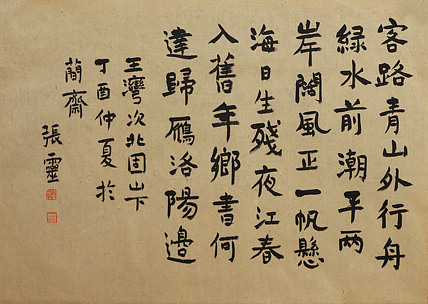 客路青山外行舟
緑水前潮平两
岸闊風正一帆懸
海日生殘夜江春
入舊年鄉書何
達歸雁洛陽邊
王灣次北固山下
丁酉仲夏於
蕳齋
張靈